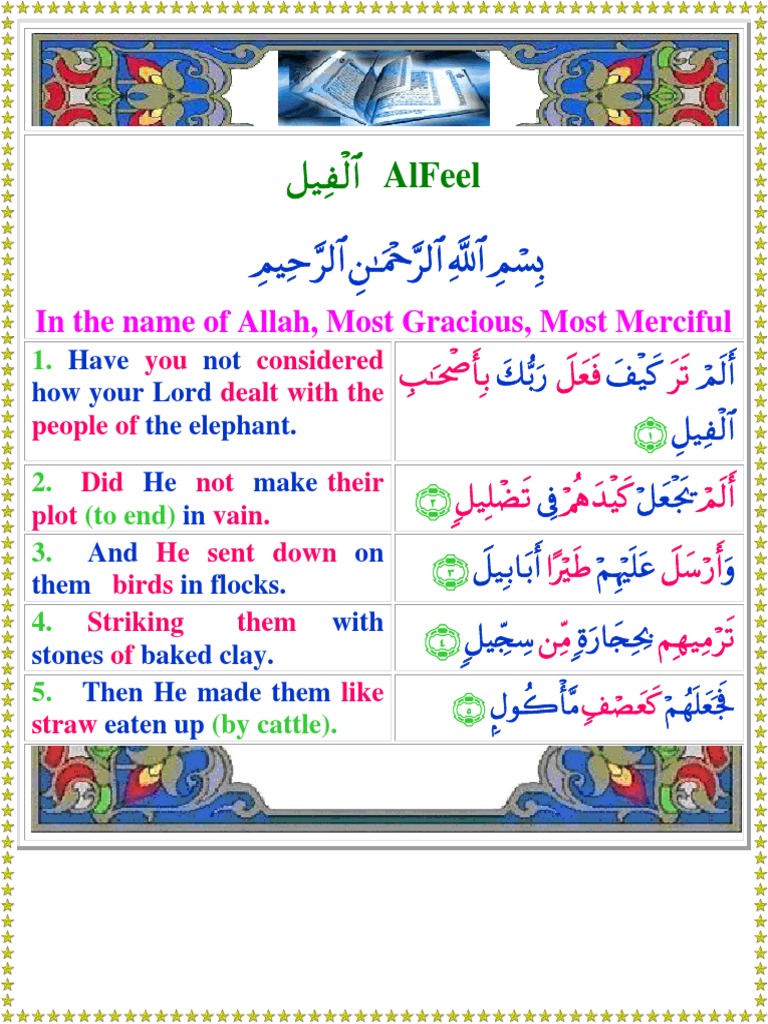 ٱلْفِيل AlFeel
بِسْمِ ٱللَّهِ ٱلرَّحْمَـٰنِ ٱلرَّحِيمِ
In the name of Allah, Most Gracious, Most Merciful
1. Have you not considered
how your Lord dealt with the
people of the elephant.
أَلَمْ تَرَ كَيْفَ فَعَلَ رَبُّكَ بِأَصْحَـٰبِ
ٱلْفِيلِ ١
2. Did He not make their
plot (to end) in vain.
أَلَمْ يَجْعَلْ كَيْدَهُمْ فِى تَضْلِيلٍ ٢
3. And He sent down on
them birds in flocks.
وَأَرْسَلَ عَلَيْهِمْ طَيْرًا أَبَابِيلَ ٣
4. Striking them with
stones of baked clay.
تَرْمِيهِم بِحِجَارَةٍ مِّن سِجِّيلٍ ٤
5. Then He made them like
straw eaten up (by cattle).
فَجَعَلَهُمْ كَعَصْفٍ مَّأْكُولٍ ٥